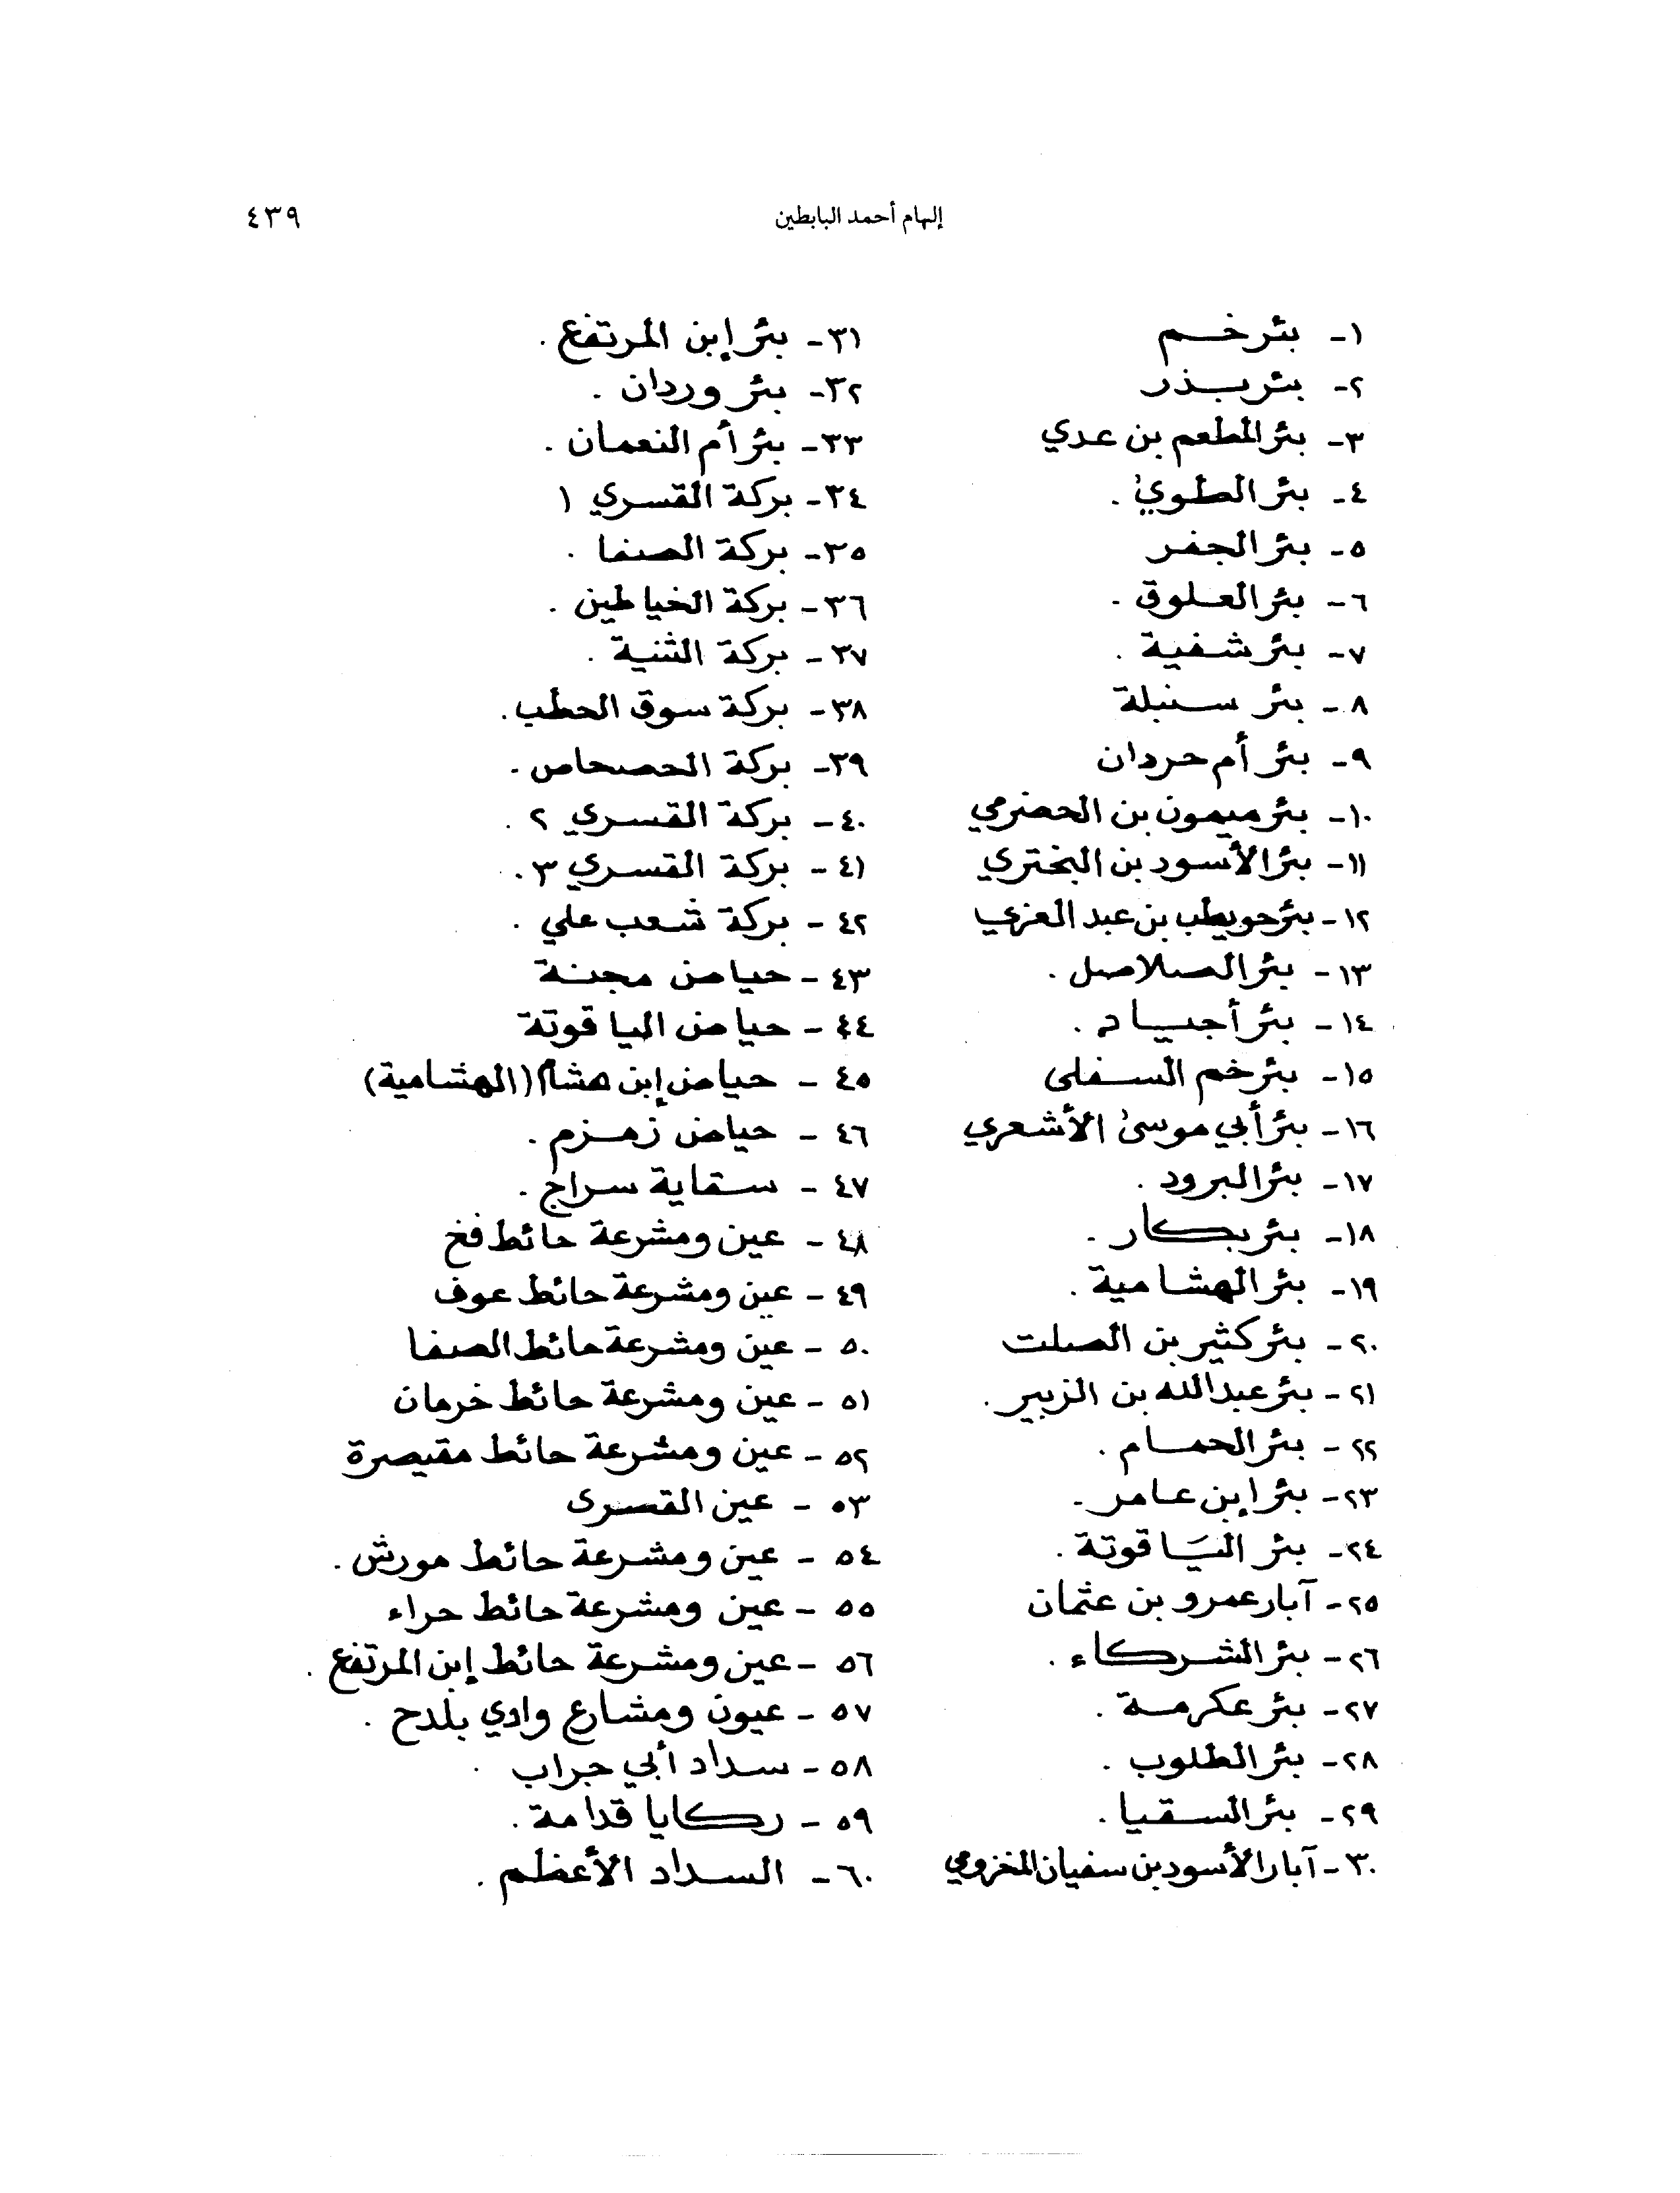 إلهام أحمد البابطين
٤٣٩
١- بئر خم
٢- بئر بذر
٣- بئر المطعم بن عدي
٤- بئر الطويٰ .
٥- بئر الجفر
٦- بئر العلوق .
٧- بئر شفية .
٨- بئر سنبلة
٩- بئر أم حردان
١٠- بئر ميمون بن الحضرمي
١١- بئر الأسود بن البختري
١٢- بئر حويطب بن عبد العزي
١٣- بئر الصلاصل .
١٤- بئر أجياد .
١٥- بئر خم السفلى
١٦- بئر أبي موسىٰ الأشعري
١٧- بئر البرود .
١٨- بئر بكار .
١٩- بئر الهشامية .
٢٠- بئر كثير بن الصلت
٢١- بئر عبدالله بن الزبير .
٢٢- بئر الحمام .
٢٣- بئر إبن عامر .
٢٤- بئر اليَاقوتة .
٢٥- آبار عمرو بن عثمان
٢٦- بئر الشركاء .
٢٧- بئر عكرمة .
٢٨- بئر الطلوب .
٢٩- بئر السقيا .
٣٠- آبار الأسود بن سفيان المخزومي
٣١- بئر إبن المرتفع .
٣٢- بئر وردان .
٣٣- بئر أم النعمان .
٣٤- بركة القسري ١
٣٥- بركة الصفا .
٣٦- بركة الخياطين .
٣٧- بركة الثنية .
٣٨- بركة سوق الحطب .
٣٩- بركة الحصحاص .
٤٠- بركة القسري ٢ .
٤١- بركة القسري ٣ .
٤٢- بركة شعب علي .
٤٣- حياض مجنة
٤٤- حياض الياقوتة
٤٥- حياض إبن هشام (الهشامية)
٤٦- حياض زمزم .
٤٧- سقاية سراج .
٤٨- عين ومشرعة حائط فخ
٤٩- عين ومشرعة حائط عوف
٥٠- عين ومشرعة حائط الصفا
٥١- عين ومشرعة حائط خرمان
٥٢- عين ومشرعة حائط مقيصرة
٥٣- عين القسرى
٥٤- عين ومشرعة حائط مورش .
٥٥- عين ومشرعة حائط حراء
٥٦- عين ومشرعة حائط إبن المرتفع .
٥٧- عيون ومشارع وادي بلدح .
٥٨- سداد أبي جراب .
٥٩- ركايا قدامة .
٦٠- السداد الأعظم .